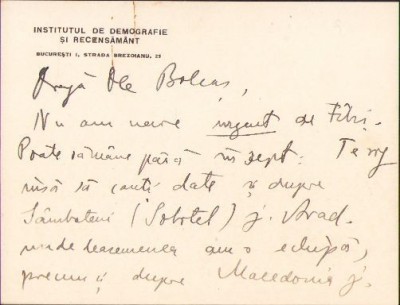 INSTITUTUL DE DEMOGRAFIE
ȘI RECENSĂMÂNT
BUCUREȘTI I, STRADA BREZOIANU, 23
Dragă Dle Bolcaș,
Nu am nevoe urgent de Filti-
Poate rămâne până în Sept. Te rog
însă să cauți date și despre
Sâmbăteni (Sobotel) j. Arad.
unde deasemenea am o echipă,
precum și despre Macedonia j.